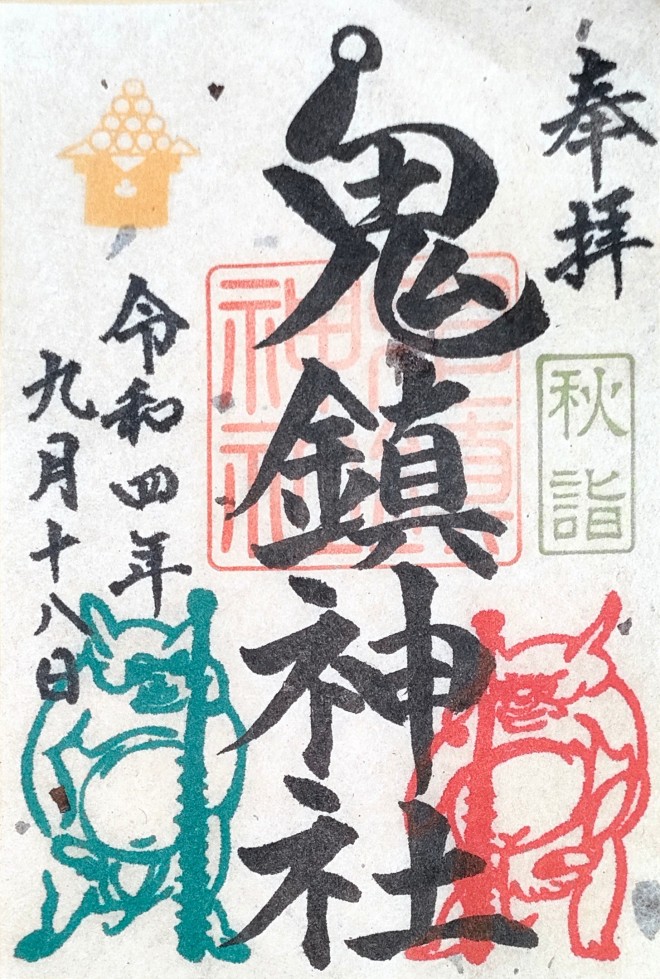 奉拝
秋詣
鬼鎮神社
令和四年
九月十八日